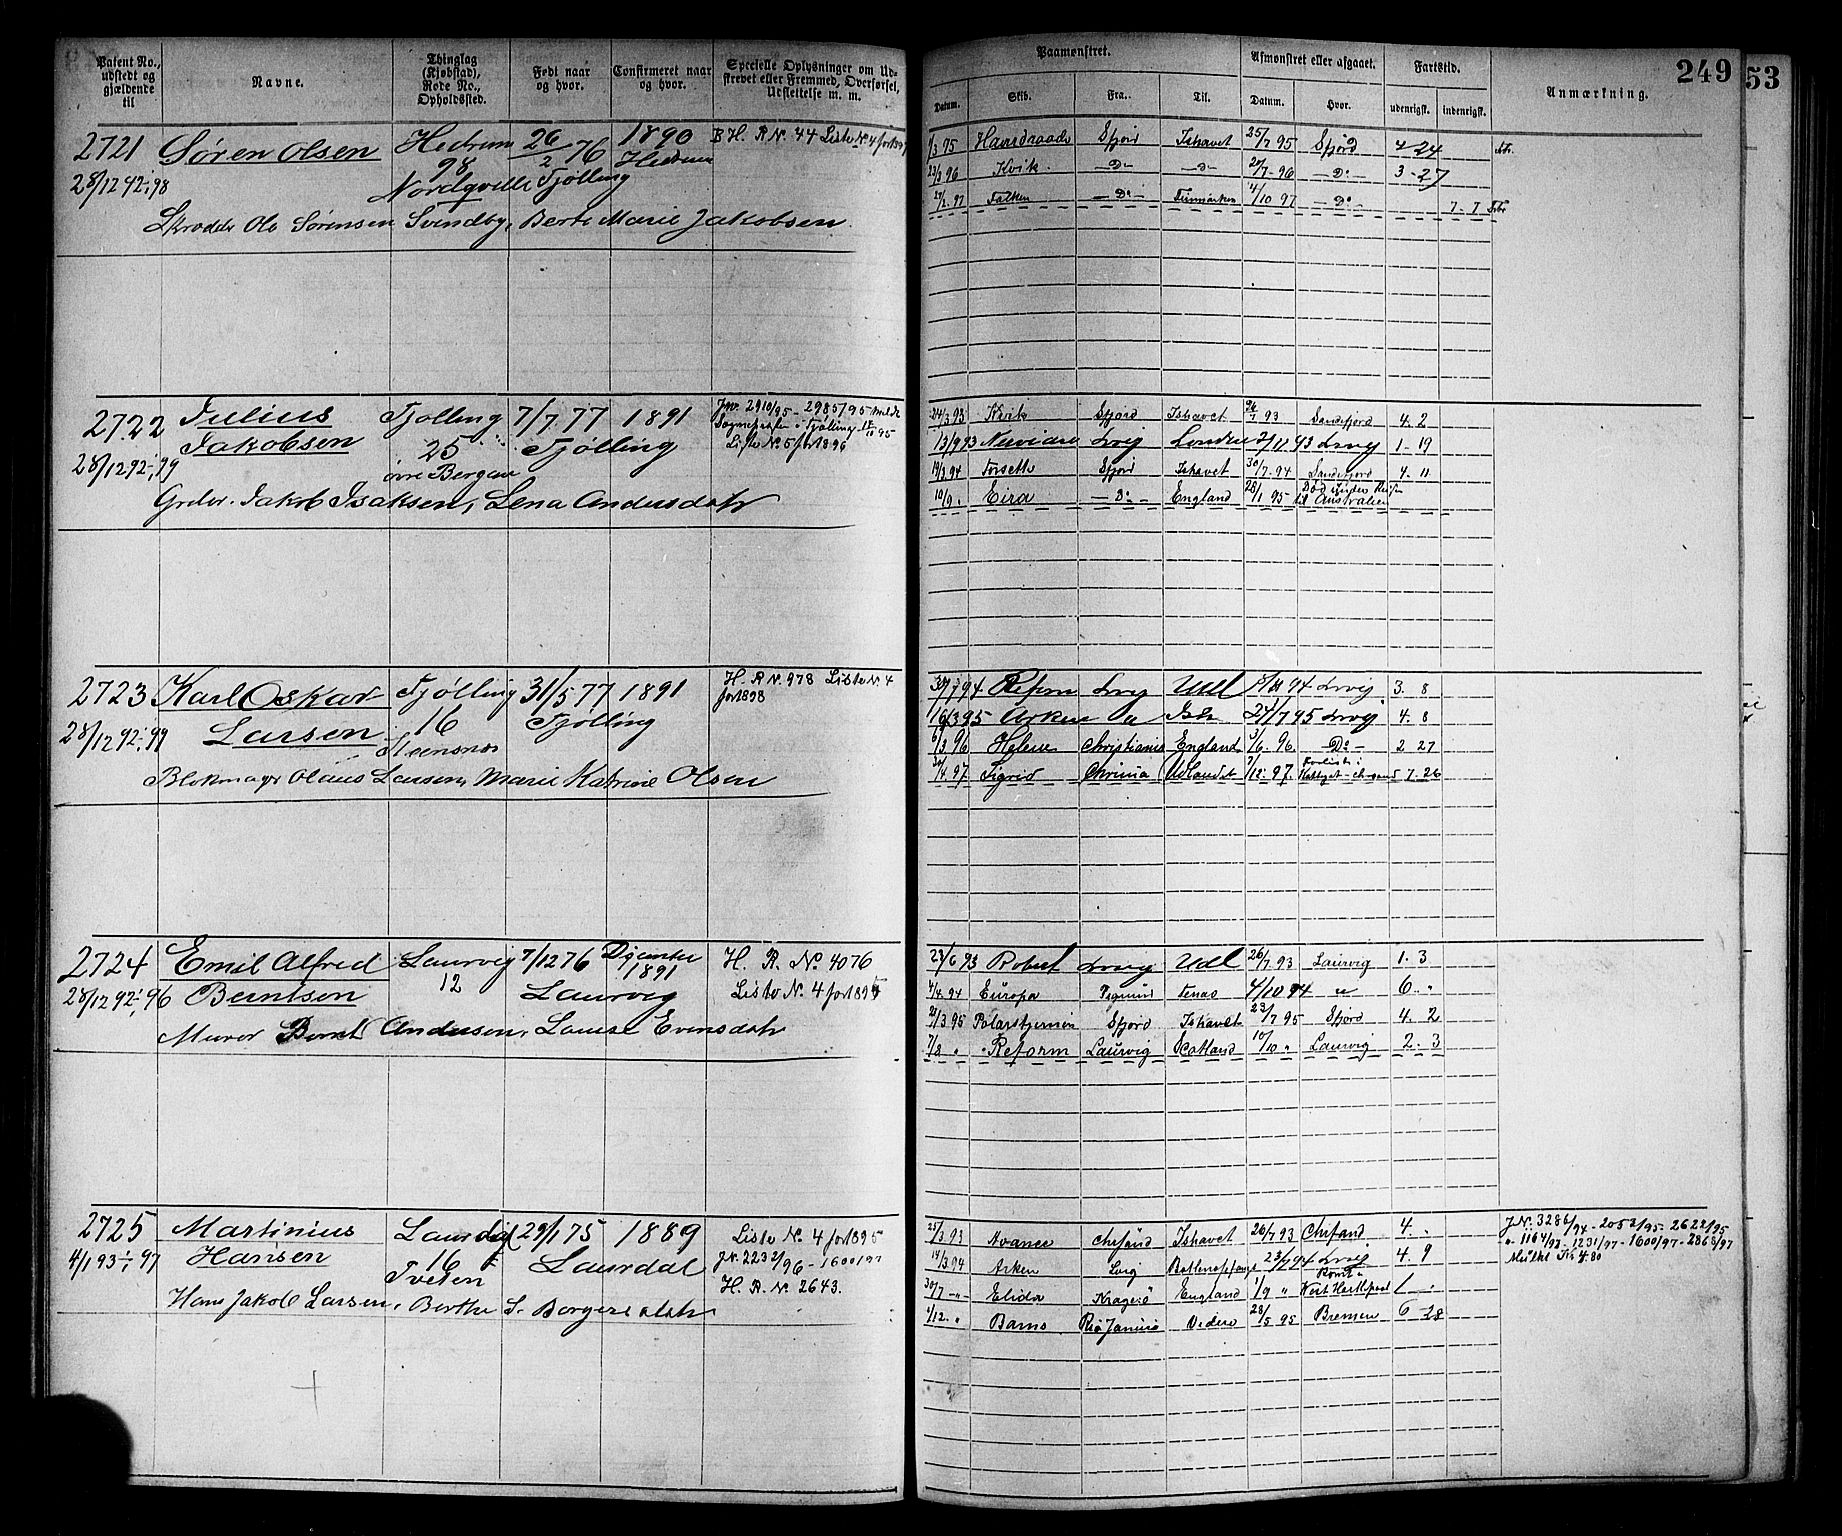 Patent No., udstedt og gjældende til
Navne.
Thinglag (Kjøbstad), Rode No., Opholdssted.
Født naar og hvor.
Confirmeret naar og hvor.
Specielle Oplysninger om Udskrevet eller Fremmed, Overførsel, Udslettelse m. m.
Paamønstret.
Afmønstret eller afgaaet.
Fartstid.
Anmærkning.
249
53
Datum. Skib. Fra. Til. Datum. Hvor. udenrigsk. indenrigsk.
2721 Søren Olsen Hedrum 26/2 76 1890 H. R. Nr. 44 Liste Nr. 4 for 1897
28/12 92-; 98 98 Hedrum
Nordqville Tjølling
Skrædder Ole Sørensen Svendby, Berte Marie Jakobsen
/3 95 Haardraade Sfjord Ishavet 25/7 95 Sfjord 4-24
23/3 96 Kvik -Do- -Do- 20/7-96 -Do- 3-27
27/2. 97 Falken -Do- Finmarken 4/10 97 -Do- 7-7
2722 Julius Tjølling 7/7. 77 1891 Jnr. 2910/95 - 2985/95
Jakobsen 25 Tjølling
28/12 92-; 99 øvre Bergan Liste No. 5 for 1896
Jakob Isaksen, Lena Andersdatr
24/3 93 Kvik Sfjord Ishavet 26/7 93 Sandefjord 4. 2
13/9 93 Lrvig London 2/11 93 Lrvig 1-19
19/3. 94 Forsette Sfjord Ishavet 30/7-94 Sandefjord 4. 11
10/9. Eira -Do- England 28/1 95 Død under Reisen til Australien
2723 Karl Oskar Tjølling 31/5 77 1891 H. R Nr. 978 Liste Nr. 4
for 1898
28/12 92-; 99 Larsen 16 Tjølling
Steensnæs
Blokmager Olaus Larsen, Marie Katrine Olsen
Reform Lrvig Udl 94 Lrvig 3. 8
16/3 95 Arken " Ish 24/7 95 Lrvig 4. 8
6/3 96 Helene Christiania England 3/6. 96 -Do- 2 27
/4. 97 Sigrid Chrinia Udlandet /12. 97. Forliste i Kattegat 7-26
2724 Emil Alfred Laurvig 7/12 76 Decembr H. R. No. 4076
28/12 92-; 96 Berntsen 12 1891
Laurvig Liste No. 4 for 1895
Murer Bernt Andersen, Lovise Evensdatr
23/6 93 Robert Lrvig Udl 26/7. 93 Laurvig 1. 3
/4. 94 Europa Tenas 4/10 94 " 6. "
21/3 95 Polarstjernen Sfjord Ishavet 23/7 95 Sfjord 4. 2
7/8 " Reform Laurvig Scotland 10/10 " Laurvig 2. 3
2725 Martinius Laurdal 29/1 75 1889 Liste No. 4 for 1895
4/1 93-; 97 Hansen 16 Laurdal Jnr. 2232/96 - 1600/97
Tveten H. R. No. 2643.
Hans Jakob Larsen, Berthe S. Borgersdatr
25/3. 93 Avance Chrsand Ishavet 26/7 93 Chrsand 4. "
14/3. 94 Arken Lvig Bottlenosefangst 23/7 94 Lrvig 4. 9
30/7 -"- Elida Kragerø England 1/9 " West Hartlepool 1 "
/12. " Bams Rio Janeiro Videre 23/5 95 Bremen 6 28
JNr. 3286/94 - 2052/95 - 2622/95
" 1164/97 - 1231/97 - 1600/97 - 2868/97
Mulkt Kr 4.80